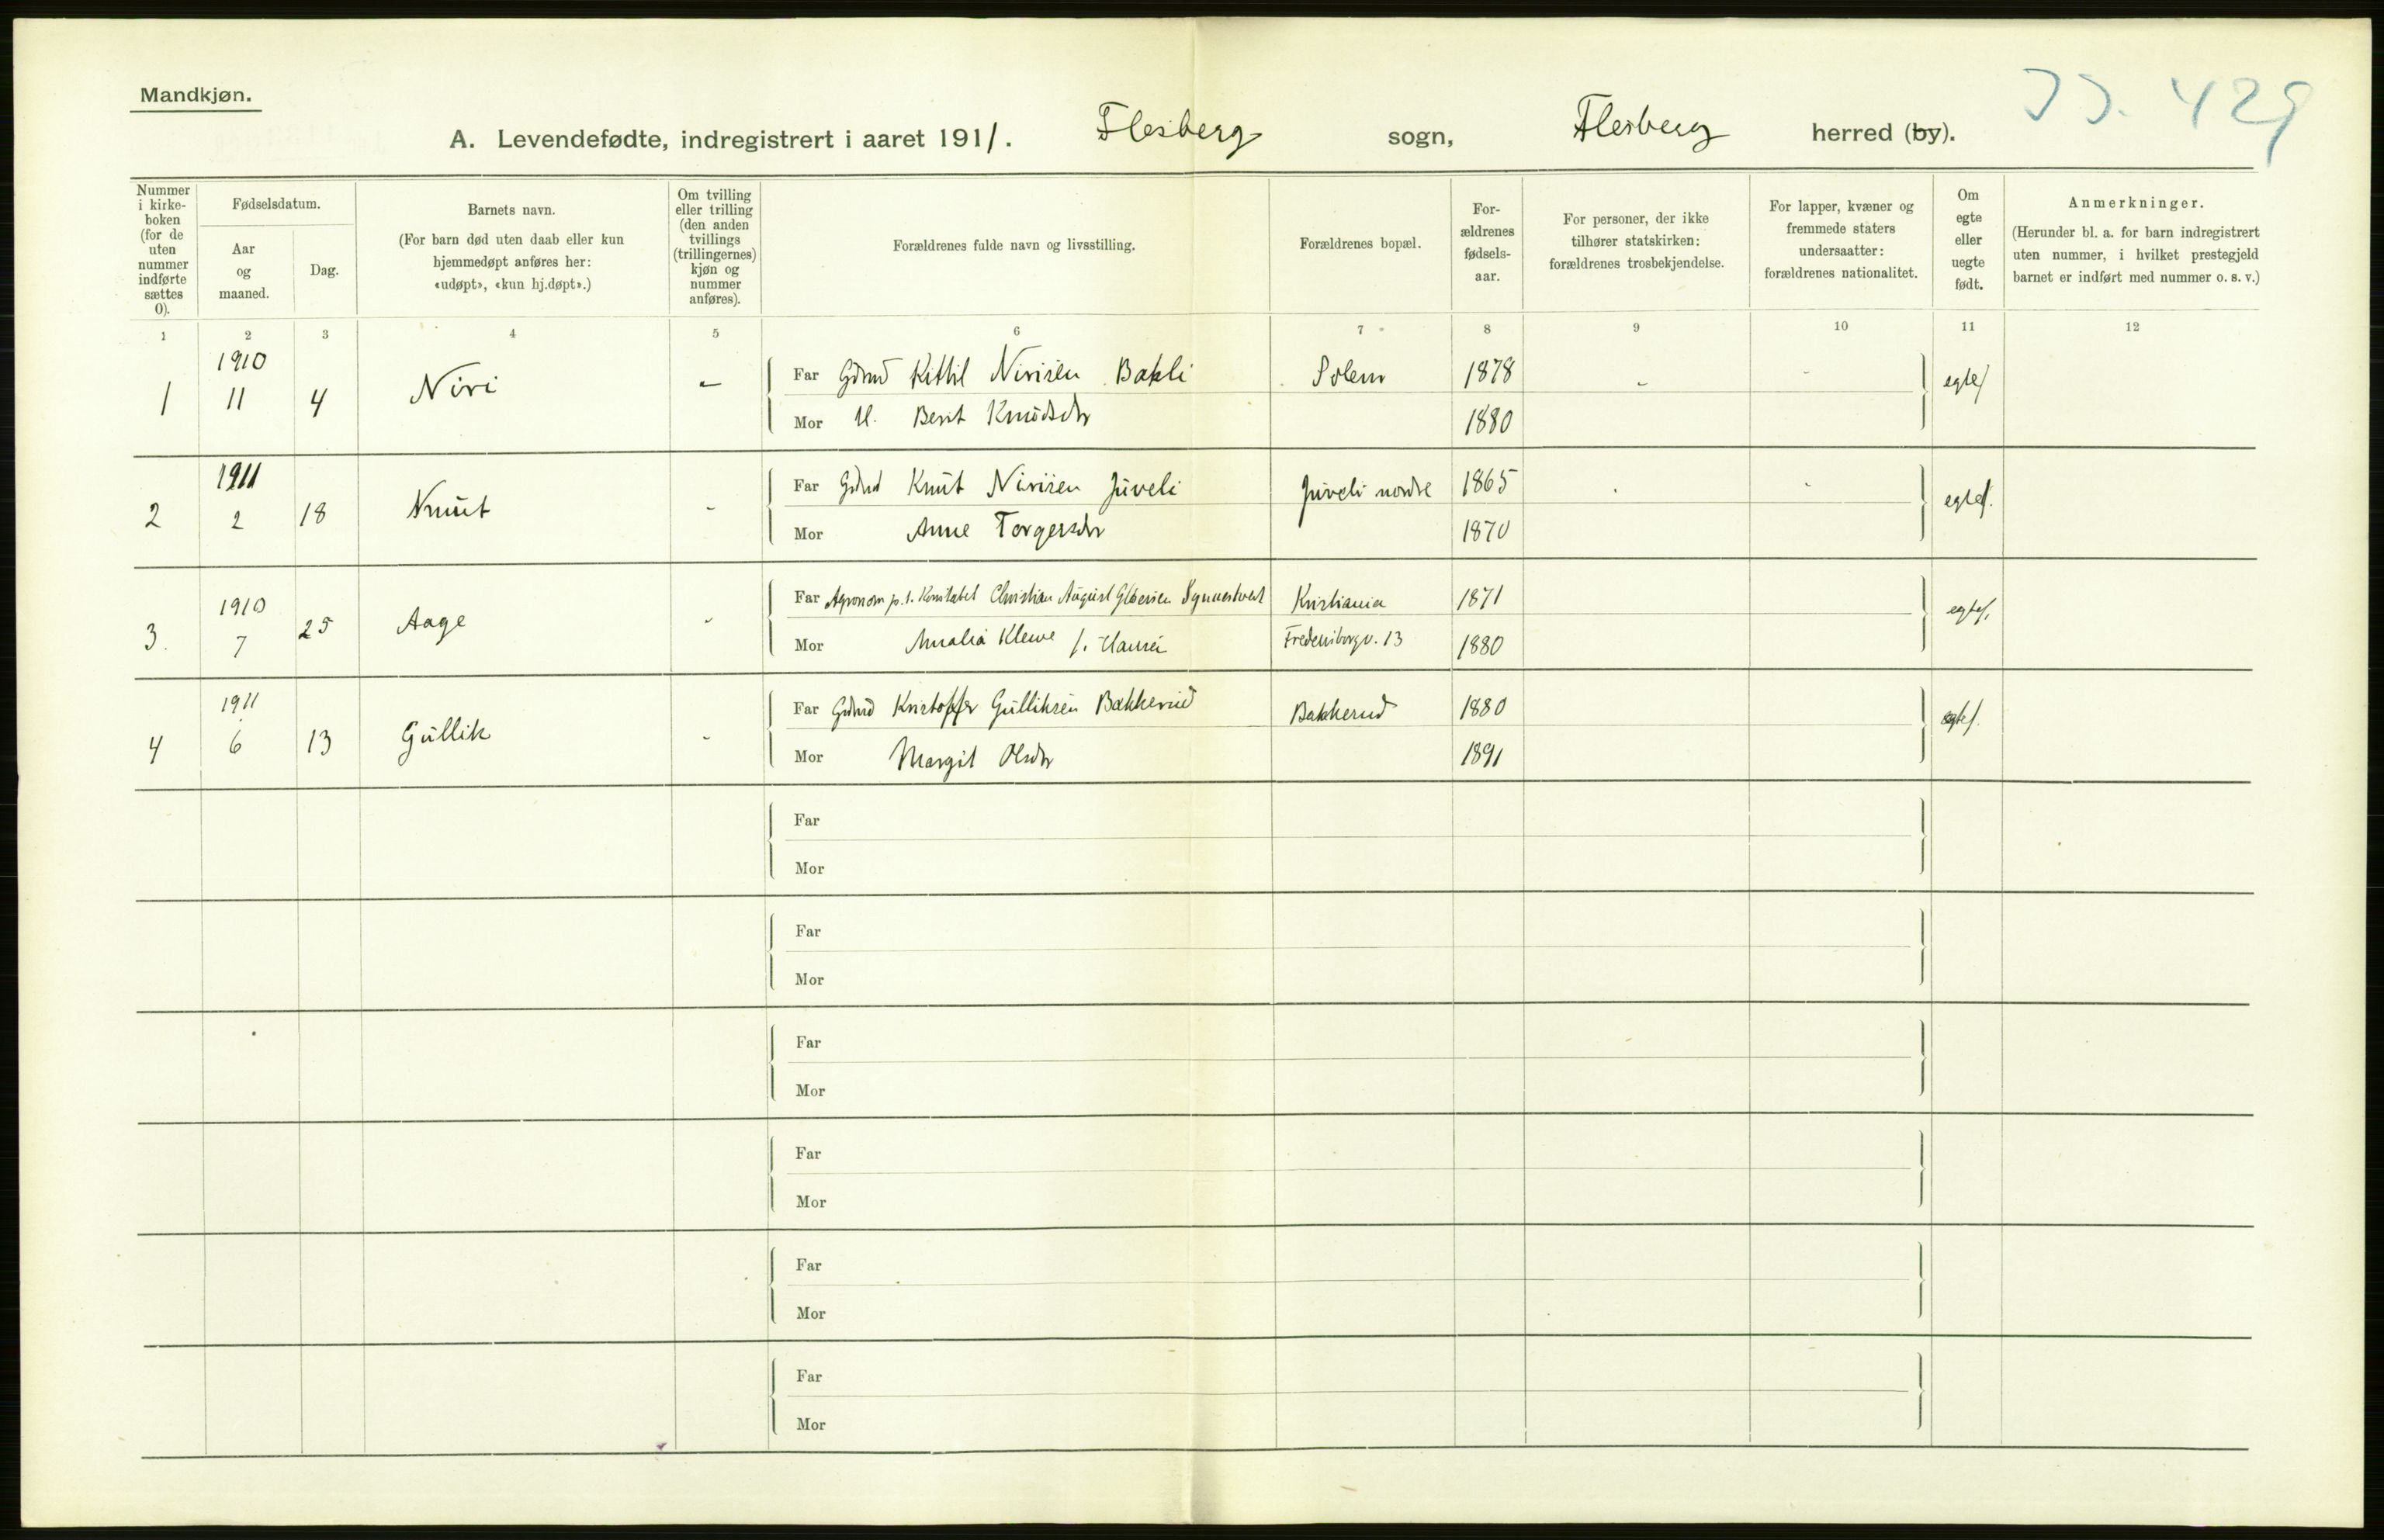 Mandkjøn.
A. Levendefødte, indregistrert i aaret 1911. Flesberg sogn, Flesberg herred (by).
429
Nummer i kirke-boken (for de uten nummer indførte sættes 0).
Fødselsdatum.
Aar og maaned.
Dag.
Barnets navn.
(For barn død uten daab eller kun hjemmedøpt anføres her: «udøpt», «kun hj.døpt».)
Om tvilling eller trilling (den anden tvillings (trillingernes) kjøn og nummer anføres).
Forældrenes fulde navn og livsstilling.
Forældrenes bopæl.
For-ældrenes fødsels-aar.
For personer, der ikke tilhører statskirken: forældrenes trosbekjendelse.
For lapper, kvæner og fremmede staters undersaatter: forældrenes nationalitet.
Om egte eller uegte født.
Anmerkninger.
(Herunder bl. a. for barn indregistrert uten nummer, i hvilket prestegjeld barnet er indført med nummer o. s. v.)
1 2 3 4 5 6 7 8 9 10 11 12
1910
1 11 4 Niri - Far Gdmd Kittil Nirisen Bakli Solem 1878 - - egtef
Mor H. Berit Knudsdtr 1880
1911
2 2 18 Knut - Far Gdmd Knut Nirisen Juveli Juveli nordre 1865 egtef.
Mor Anne Torgersdtr 1870
1910
3. 7 25 Aage - Far Agronom p.t. Konstabel Christian August Kristiania 1871 egtef.
Mor Amalia Klewe f. Hansen Fredensborgv. 13 1880
1911
4 6 13 Gullik - Far Gdmd Kristoffer Gulliksen Bakkerud Bakkerud 1880 egtef.
Mor Margit Olsdtr 1891
Far
Mor
Far
Mor
Far
Mor
Far
Mor
Far
Mor
Far
Mor